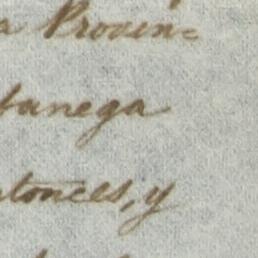 a Provin=
tunega
ntonces, y